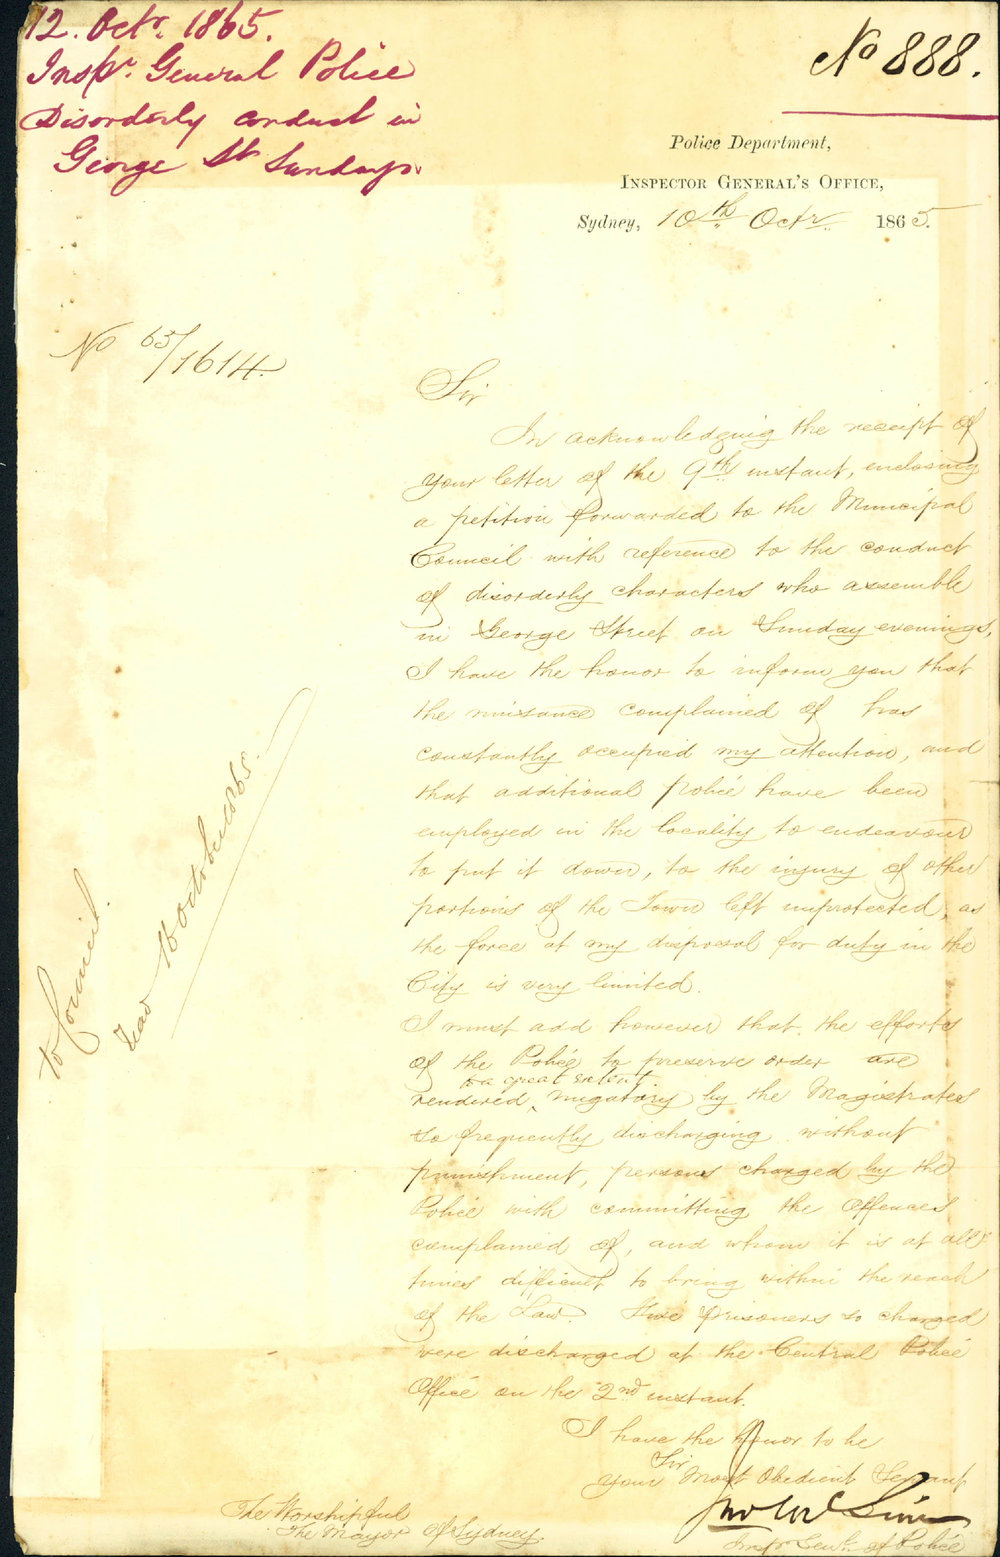 12. Octr. 1865.
Inspr. General Police
Disorderly conduct in
George St Sundays.
No 888.
Police Department,
INSPECTOR GENERAL'S OFFICE,
Sydney, 10th Octr 1865.
No 65/1614.
Sir
In acknowledging the receipt of
your letter of the 9th instant, enclosing
a petition forwarded to the Municipal
Council with reference to the conduct
of disorderly characters who assemble
in George Street on Sunday evenings,
I have the honor to inform you that
the nuisance complained of has
constantly occupied my attention, and
that additional police have been
employed in the locality to endeavour
to put it down, to the injury of other
portions of the Town left unprotected, as
the force at my disposal for duty in the
City is very limited.
I must add however that the efforts
of the Police to preserve order are
to a great extent
rendered nugatory by the Magistrates
so frequently discharging without
punishment, persons charged by the
Police with committing the offences
complained of, and whom it is at all
times difficult to bring within the reach
of the Law. Five prisoners so charged
were discharged at the Central Police
Office on the 2nd instant.
I have the honor to be
Sir
Your Most Obedient Servant
Inspr Genl. of Police
The Worshipful
The Mayor of Sydney
To Council.
Read 16 October 65.